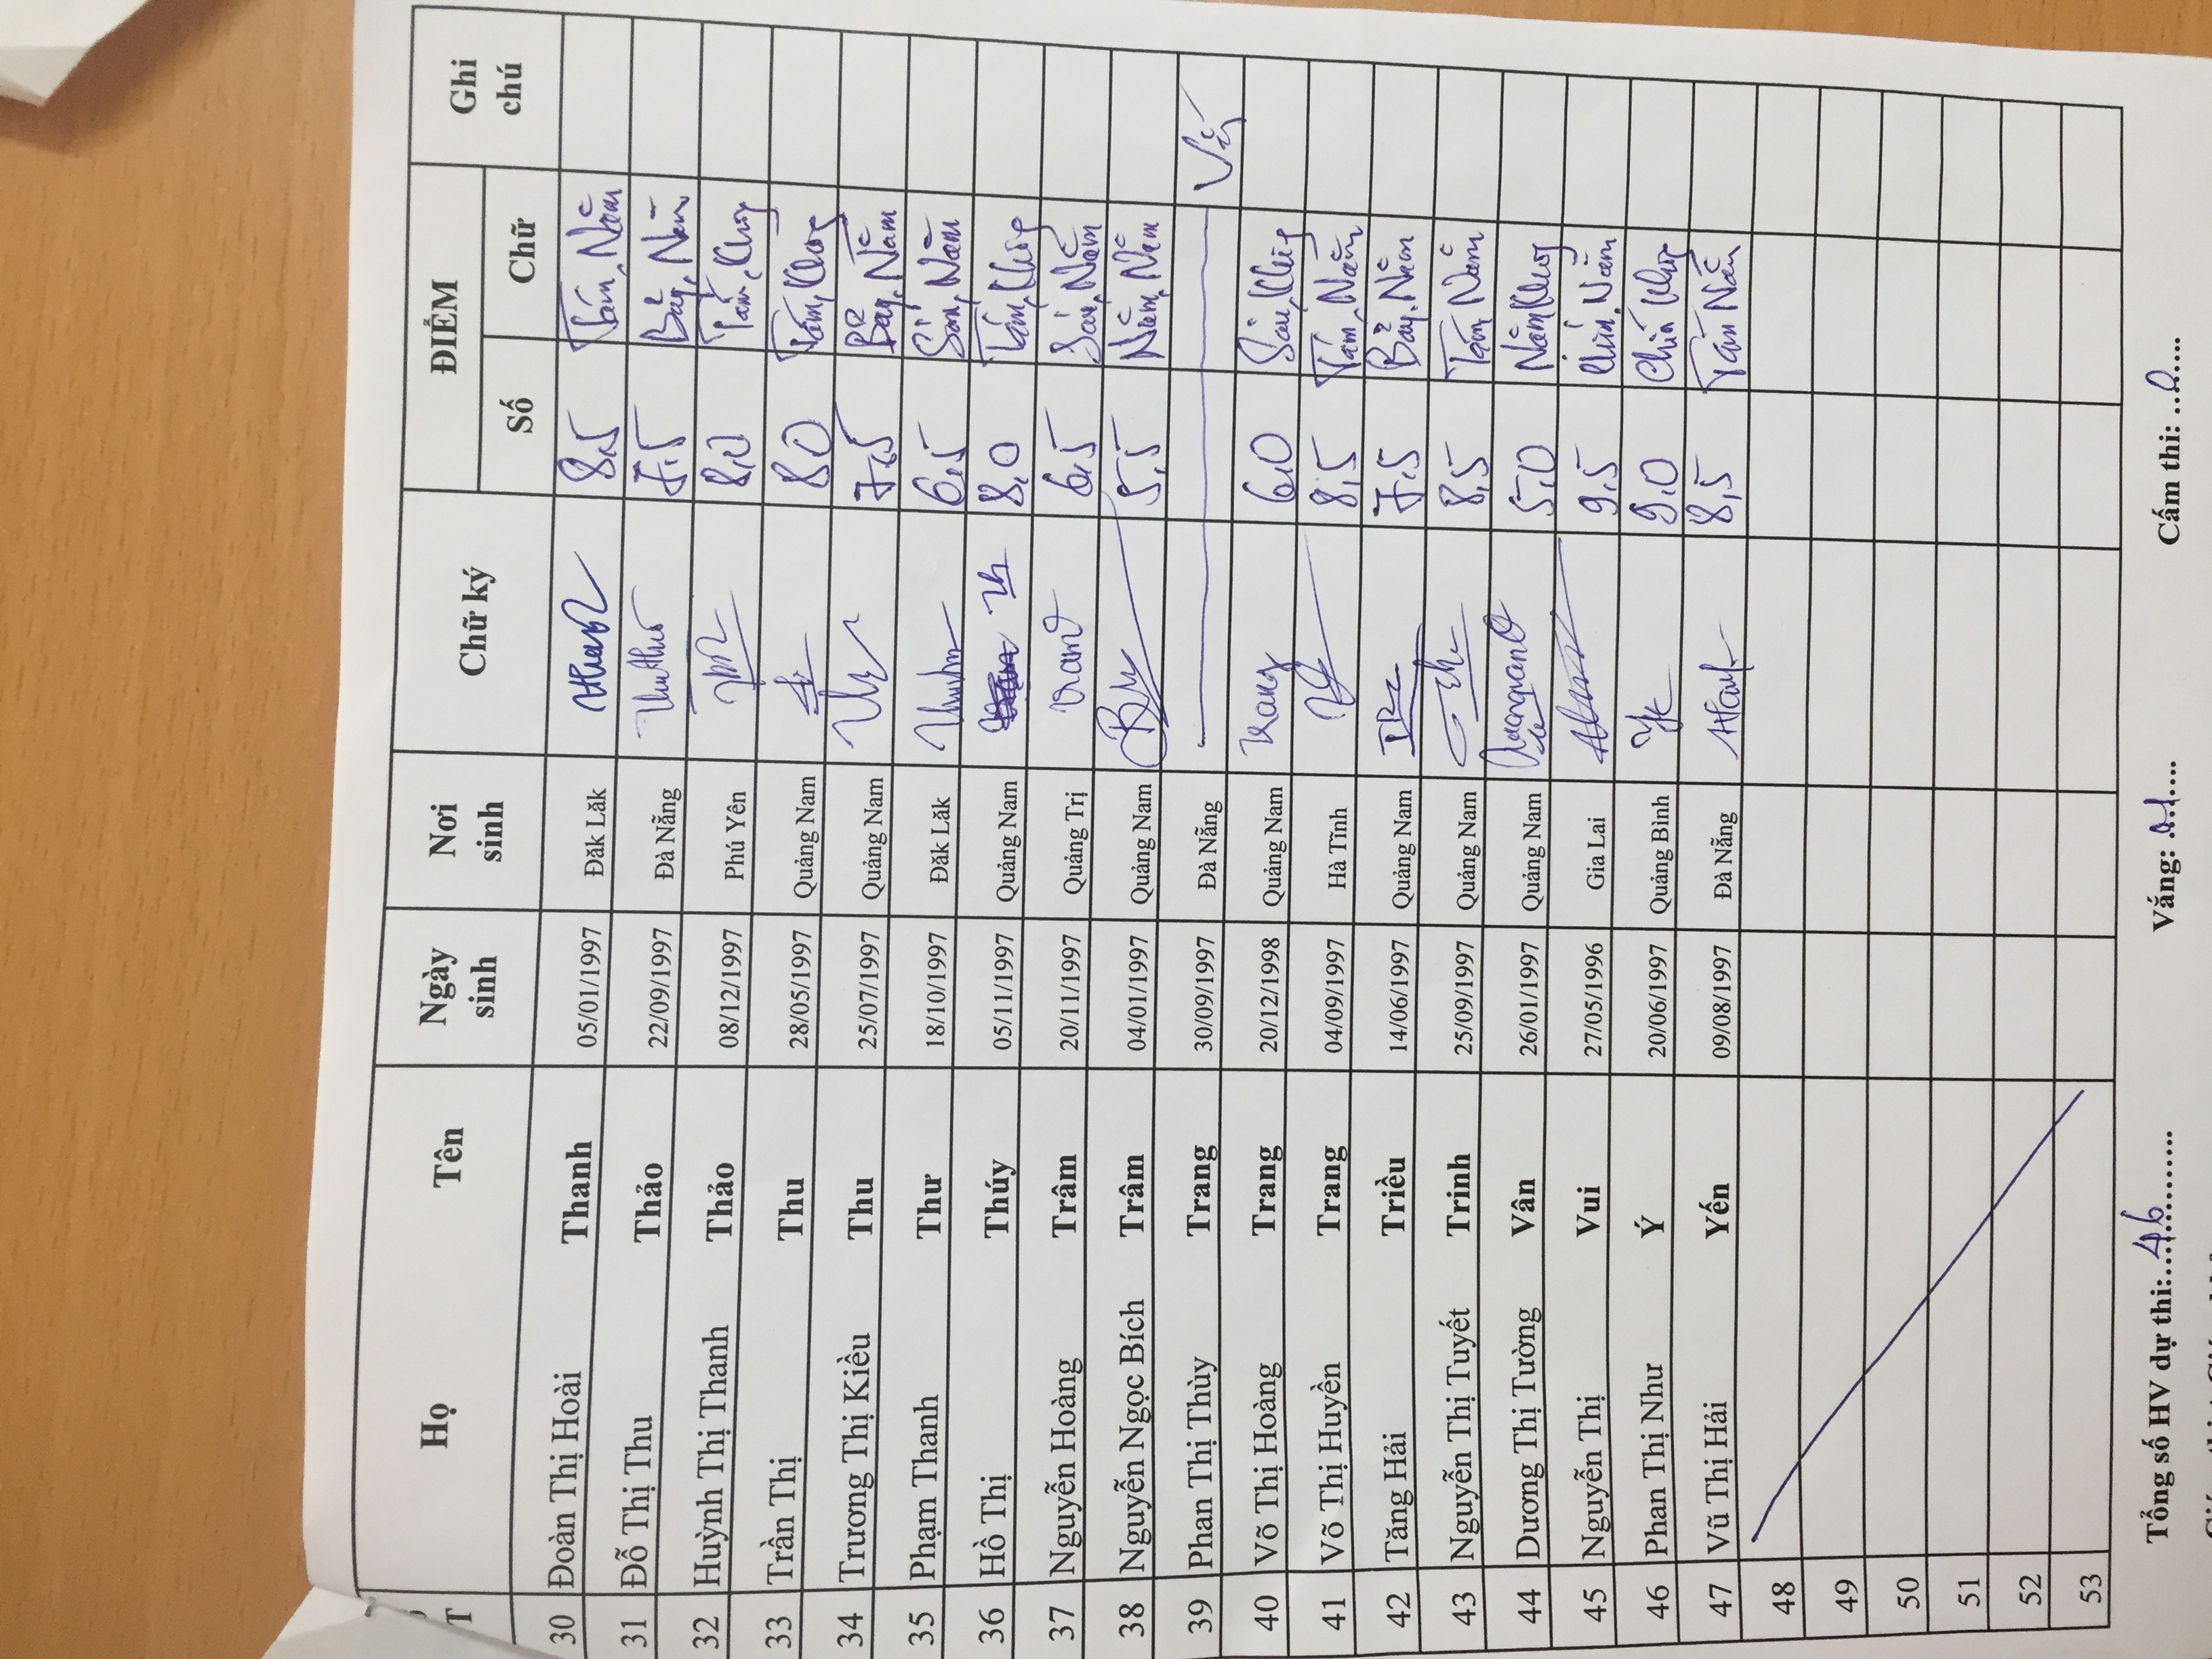 Họ Tên Ngày sinh Nơi sinh Chữ ký ĐIỂM Ghi chú
Số Chữ
T
30 Đoàn Thị Hoài Thanh 05/01/1997 Đăk Lăk 8.5 Tám, Năm
31 Đỗ Thị Thu Thảo 22/09/1997 Đà Nẵng 7.5 Bảy, Năm
32 Huỳnh Thị Thanh Thảo 08/12/1997 Phú Yên 8,0 Tám, Không
33 Trần Thị Thu 28/05/1997 Quảng Nam 80 Tám, Không
34 Trương Thị Kiều Thu 25/07/1997 Quảng Nam 7.5 Bảy, Năm
35 Phạm Thanh Thư 18/10/1997 Đăk Lăk 6.5 Sáu, Năm
36 Hồ Thị Thúy 05/11/1997 Quảng Nam 8.0 Tám, Không
37 Nguyễn Hoàng Trâm 20/11/1997 Quảng Trị 6,5 Sáu, Năm
38 Nguyễn Ngọc Bích Trâm 04/01/1997 Quảng Nam 5.5 Năm, Năm
39 Phan Thị Thùy Trang 30/09/1997 Đà Nẵng
40 Võ Thị Hoàng Trang 20/12/1998 Quảng Nam 6,0 Sáu, Không
41 Võ Thị Huyền Trang 04/09/1997 Hà Tĩnh 8,5 Tám, Năm
42 Tăng Hải Triều 14/06/1997 Quảng Nam 7.5 Bảy, Năm
43 Nguyễn Thị Tuyết Trinh 25/09/1997 Quảng Nam 8,5 Tám, Năm
44 Dương Thị Tường Vân 26/01/1997 Quảng Nam 5,0 Năm, Không
45 Nguyễn Thị Vui 27/05/1996 Gia Lai 9.5 Chín, Năm
46 Phan Thị Như Ý 20/06/1997 Quảng Bình 9.0 Chín Không
47 Vũ Thị Hải Yến 09/08/1997 Đà Nẵng 8,5 Tám Năm
48
49
50
51
52
53
Tổng số HV dự thi:...46........... Vắng: ..01.... Cấm thi: ...0.....